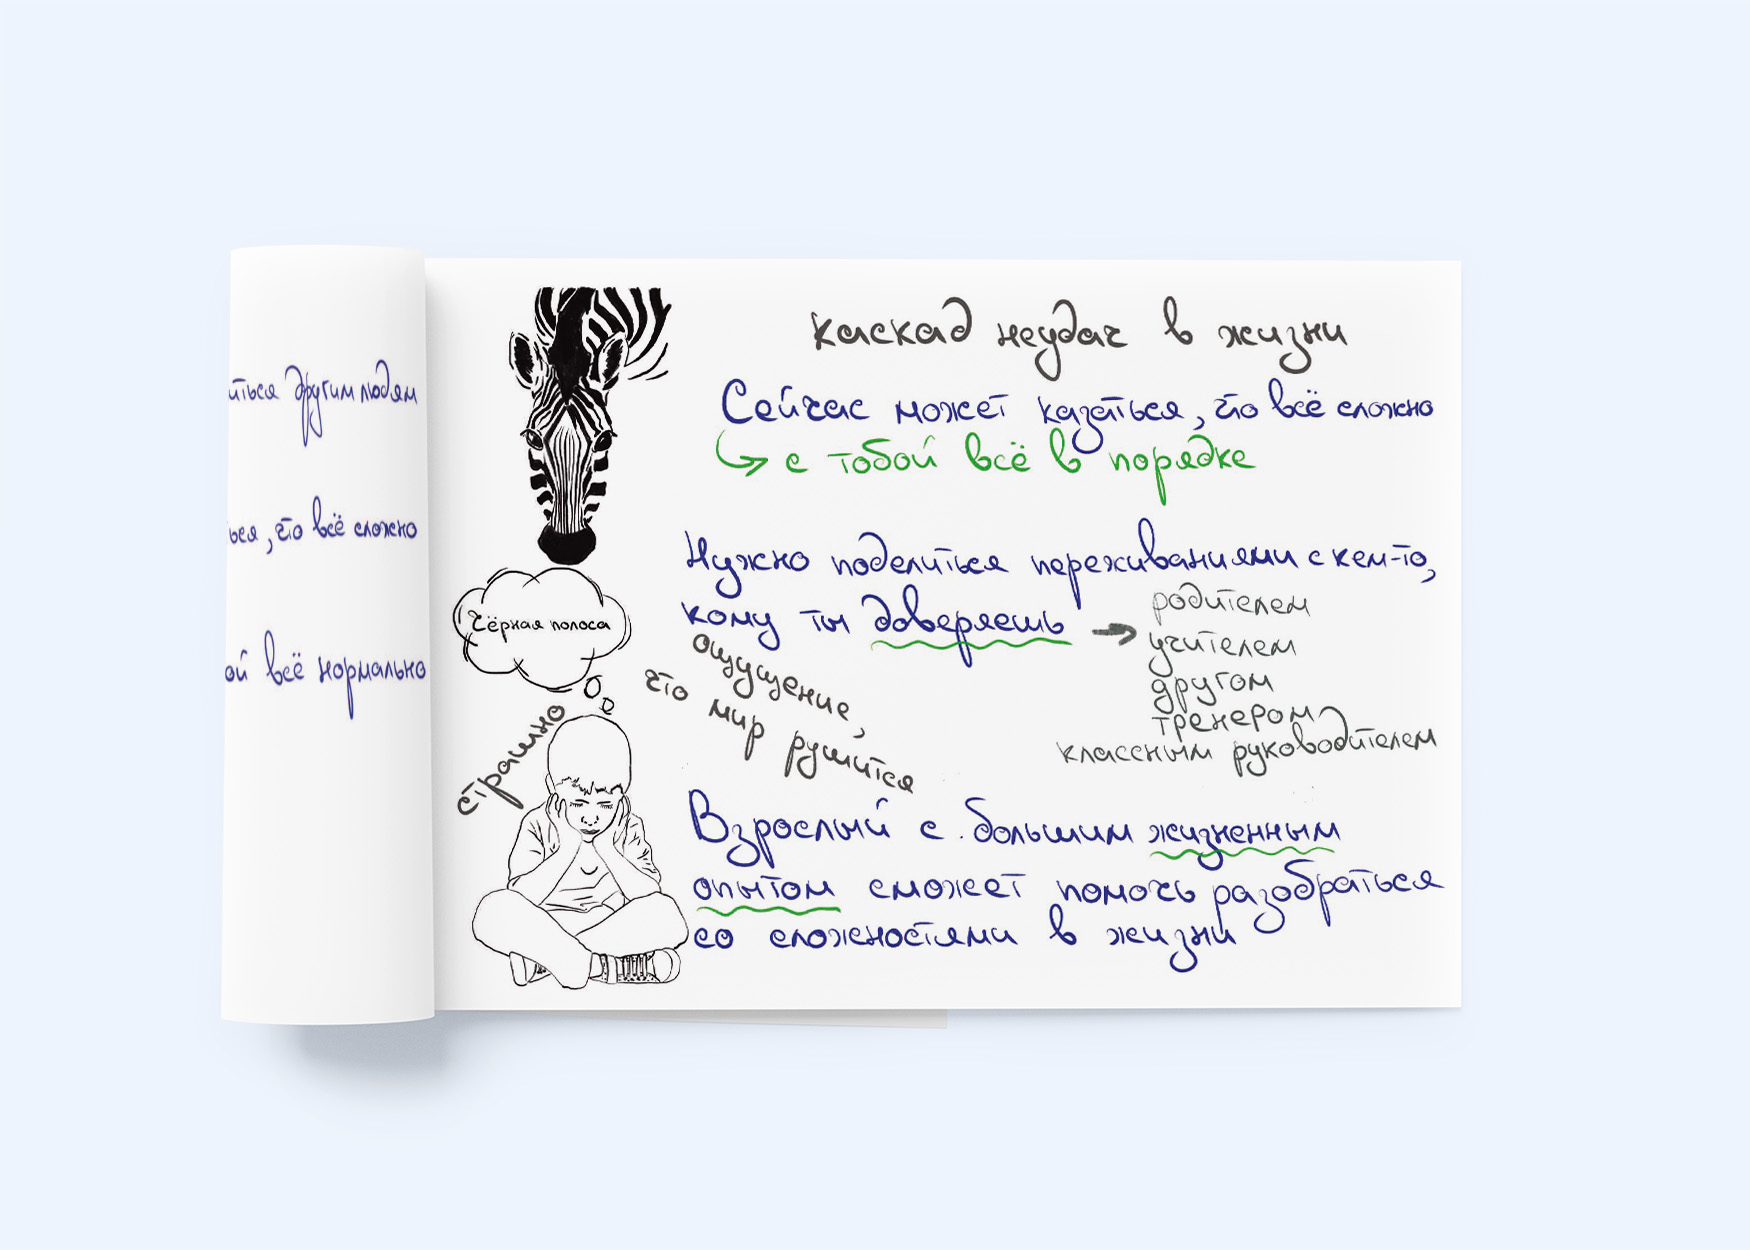 иться другим людям
ься, что всё сложно
ой всё нормально
каскад неудач в жизни
Сейчас может казаться, что всё сложно
с тобой всё в порядке
Нужно поделиться переживаниями с кем-то,
кому ты доверяешь
родителем
учителем
другом
тренером
классным руководителем
Чёрная полоса
ощущение,
что мир рушится
страшно
Взрослый с большим жизненным
опытом сможет помочь разобраться
со сложностями в жизни